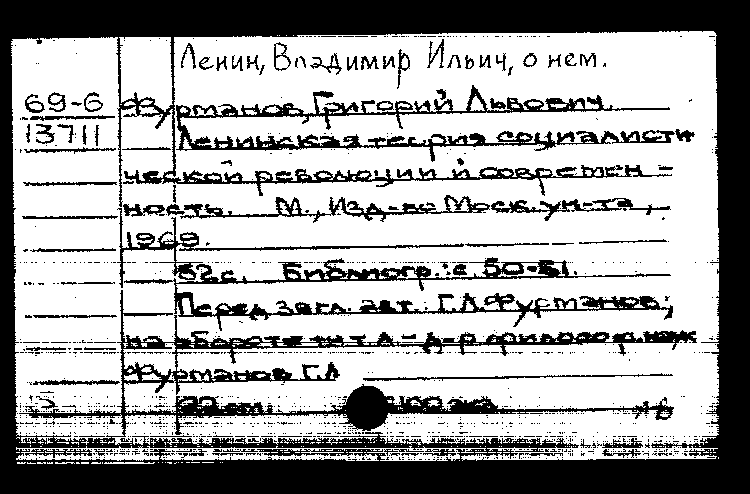 Ленин, Владимир Ильич, о нем.
69-6 Фурманов, Григорий Львович.
13711 Ленинская теория социалисти
ческой революции и современ-
ность. М., Изд-во Моск. ун-та,
1969.
52 с. Библиогр.: с. 50-51.
Перед загл. авт.: Г.Л. Фурманов;
на обороте тит. л. - д-р философ. наук
Фурманов Г.Л
22 см. экз.